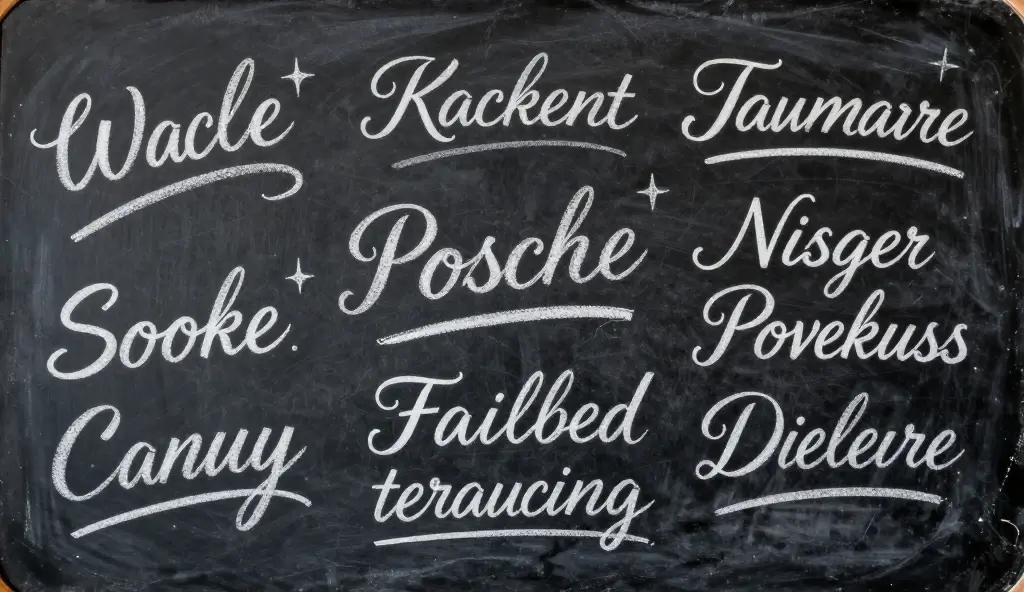 Wacle
Kackent
Taumavre
Sooke.
Posche
Nisger
Povekuss
Canuy
Failbed
teraucing
Dieleire